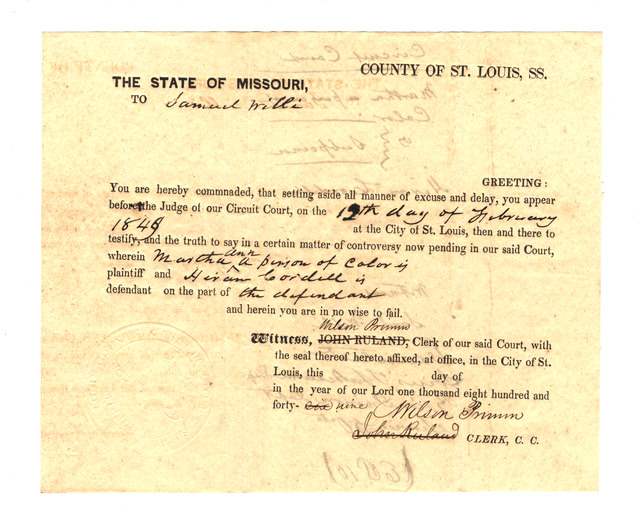 COUNTY OF ST. LOUIS, SS.
THE STATE OF MISSOURI,
TO Samuel Willi
GREETING:
You are hereby commnaded, that setting aside all manner of excuse and delay, you appear
before the Judge of our Circuit Court, on the 12th day of February
1849 at the City of St. Louis, then and there to
testify, and the truth to say in a certain matter of controversy now pending in our said Court,
wherein Martha ann a person of Color is
plaintiff and Hiram Cordell is
defendant on the part of the defendant
and herein you are in no wise to fail.
Wilson Primm
Witness, JOHN RULAND, Clerk of our said Court, with
the seal thereof hereto affixed, at office, in the City of St.
Louis, this day of
in the year of our Lord one thousand eight hundred and
forty- nine Wilson Primm
John Ruland CLERK, C. C.